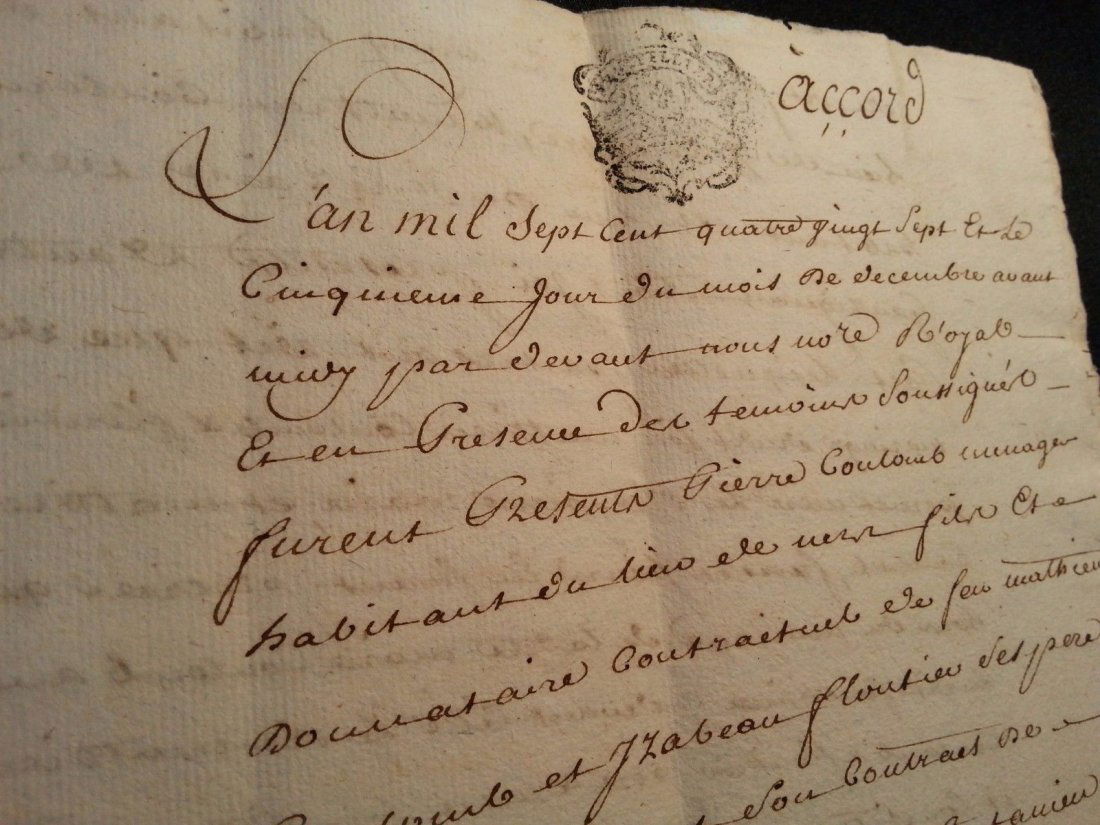 àccord
L'an mil sept cent quatre vingt sept Et Le
Cinquieme Jour du mois De decembre avant
midy par devant nous no're Royal
Et en Presence des temoins soussignés
furent Presents Pierre Coulomb menager
habitant du lieu de ners fils Et
Donnataire Contractuel de feu mathieu
et Izabeau floutier ses pere
son Contract De